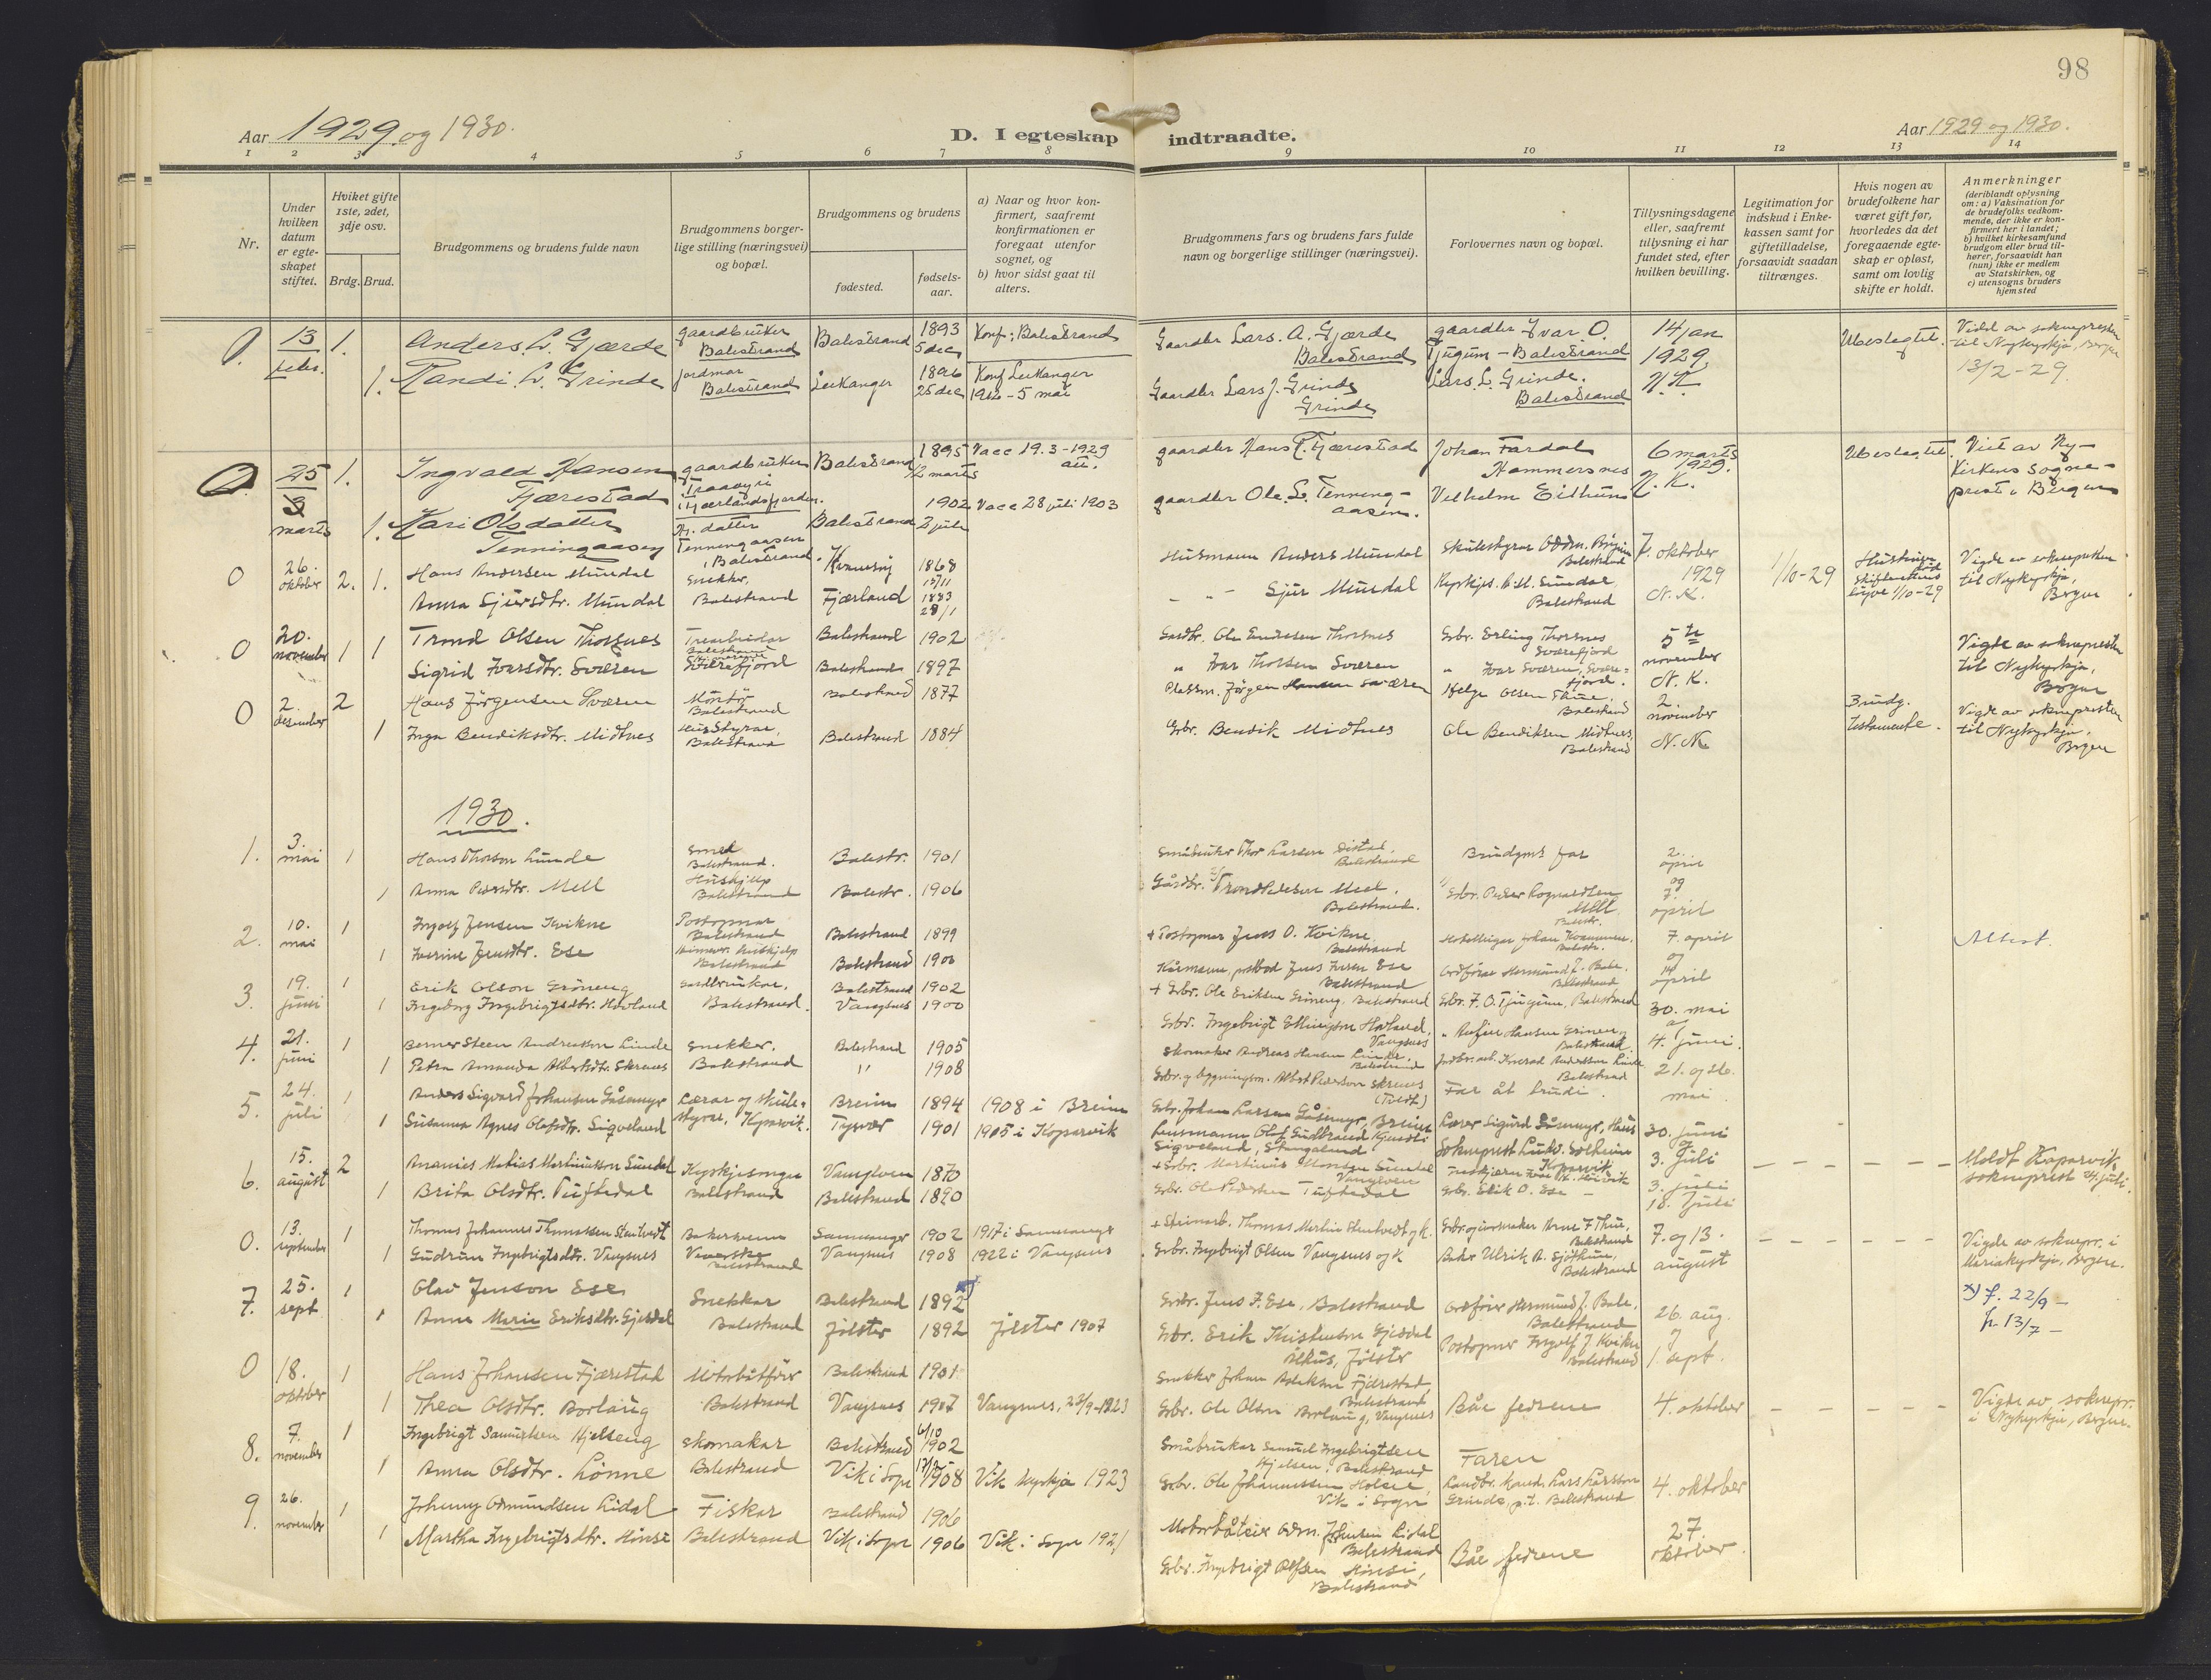 98
Aar 1929 og 1930.
D. I egteskap indtraadte.
Aar 1929 og 1930.
1 2 3 4 5 6 7 8 9 10 11 12 13 14
Nr.
Under hvilken datum er egteskapet stiftet.
Hviket gifte 1ste, 2det, 3dje osv.
Brdg. Brud.
Brudgommens og brudens fulde navn
Brudgommens borgerlige stilling (næringsvei) og bopæl.
Brudgommens og brudens
fødested.
fødselsaar.
a) Naar og hvor konfirmert, saafremt konfirmationen er foregaat utenfor sognet, og
b) hvor sidst gaat til alters.
Brudgommens fars og brudens fars fulde navn og borgerlige stillinger (næringsvei).
Forlovernes navn og bopæl.
Tillysningsdagene eller, saafremt tillysning ei har fundet sted, efter hvilken bevilling.
Legitimation for indskud i Enkekassen samt for giftetilladelse, forsaavidt saadan tiltrænges.
Hvis nogen av brudefolkene har været gift før, hvorledes da det foregaaende egteskap er opløst, samt om lovlig skifte er holdt.
Anmerkninger
(deriblandt oplysning om: a) Vaksination for de brudefolks vedkommende, der ikke er konfirmert her i landet;
b) hvilket kirkesamfund brudgom eller brud tilhører, forsaavidt han (hun) ikke er medlem av Statskirken, og
c) utensogns bruders hjemsted
0. 13 febr. 1. Anders L. Gjærde gaardbruker Balestrand Balestrand 1893 5 dec Konf: Balestrand Gaardbr Lars. A. Gjærde Balestrand gaardbr Ivar O. Tjugum - Balestrand 14 jan 1929 N.K. Ubeslegtet. Vidd av sokneprester til Nykyrkja, Bergen 13/2-29.
1. Randi L. Grinde jordmor Balestrand Leikanger 1896 25 dec Konf Leikanger 1912 - 5 mai Gaardbr Lars J. Grinde Grinde Lars. L. Grinde. Balestrand
0. 25 marts 1. Ingvald Hansen Fjærestad gaardbruker Balestrand 1895 12 marts Vacc 19.3-1929 gaardbr Hans Fjærestad Johan Fardal Hammersnes 6 marts 1929. N.K. Ubeslegtet. Viet av Nykirkens Sogneprest i Bergen
1. Kari Olsdatter Tenningaasen datter Tenningaasen i Balestrand Balestrand 1902 2 juli Vacc 28 juli 1903 gaardbr Ole. S. Tenningaasen. Vilhelm Eithun
0 26. oktober 2. 1. Hans Andersen Mundal Snekker, Balestrand 1868 13/11 Husmann Anders Mundal Balestrand 7. oktober 1929 N.K. 1/10-29 Vigde av soknepresten til Nykyrkja, Bergen
Anna Sjursdtr. Mundal Fjærland 1883 28/1 - " - Sjur Mundal Sundal, Balestrand
0 20. november 1 1 Trond Olsen Thorsnes Balestrand 1902 Gardbr. Ole Endresen Thorsnes Gbr. Erling Thorsnes Sværefjord 5te november N.K. Vigde av soknepresten til Nykyrkja, Bergen
Sigrid Ivarsdtr. Sværen Sværefjord Balestrand 1897 " Ivar Thorsen Sværen " Ivar Sværen, Sværefjord.
0 2. desember 2 Hans Jörgensen Sværen Montör Balestrand Balestrand 1877 Jörgen Hansen Sværen Helge Olsen Thue. Balestrand 2. november N.K. Brudg. Vigde av soknepresten til Nykyrkja, Bergen
1 Inga Bendiksdtr. Midtnes Husstyrar, Balestrand Balestrand 1884 Gbr. Bendik Midtnes Ole Bendiksen Midtnes, Balestrand
1930.
1. 3. mai 1 Hans Thorson Lunde Smed Balestrand. Balestr. 1901 Thor Larson Balestrand Brudgms far 2. april og 7. april
1 Anna Pedersdtr. Mell Hushjelp Balestrand Balestr. 1906 Gårdbr. Trond Pederson Mell. Balestrand. Gbr. Peder Rognaldsen Mell Balestr.
2. 10. mai 1 Ingolf Jensen Kvikne Postopnar Balestrand Balestrand 1899 + Postopnar Jens O. Kvikne Balestrand Johan Kvamme. Balestr. 7. april og 14 april
1 Iverine Jensdtr. Ese Balestrand Balestrand 1900 Jens Iversen Ese Balestrand Ordförar Hermund J. Bale. Balestrand
3. 19. juni 1 Erik Olson Gröneng Gardbrukar. Balestrand 1902 + Gbr. Ole Eriksen Gröneng. Balestrand Gbr. F. O. Tjugum, Balestrand 30. mai og 4. juni.
1 Ingeborg Ingebrigtsdtr. Hovland Balestrand Vangsnes 1900 Gbr. Ingebrigt Ellingson Hovland, Vangsnes Balestrand
4. 21. juni 1 Berner Steen Andreasson Linde Snekker. Balestrand 1905 Skomaker Andreas Hansen Linde, Balestrand Balestrand 21. og 26. mai
1 Petra Amanda Albertsdtr. Skrenes Balestrand " 1908 Gbr. og bygningsm. Albert Pederson Skrenes (Tvedt) Far åt brudi.
5. 24. juli 1 Anders Sigvard Johansen Gåsemyr Lærar og skulestyrar, Kopervik. Breim 1894 1908 i Breim Gbr. Johan Larson Gåsemyr, Breim Lærer Sigurd Gåsemyr, 30. juni og 3. juli Meldt Koparvik sokneprest 24/juli.
1 Susanna Agnes Olafsdtr. Sigveland Tysvær 1901 1905 i Koparvik Lensmann Olaf Gudbrand Sigveland, Stangeland Sokneprest Solheim Koparvik
6. 15. august 2 Ananias Matias Martinusson Sundal Kyrkjesongar Balestrand Vangloen 1870 + Gbr. Martinus Monson Sundal 3. juli 18. juli
1 Brita Olsdtr. Tuftedal Balestrand 1890 Gbr. Ole Pedersen Tuftedal Gbr. Erik O. Ese
0. 13. september 1 Thomas Johannes Thomassen Stentvedt Bakersvenn Samnanger 1902 1917 i Samnanger + Steinarb. Thomas Martin Stentvedt og k. Arne F Thue, Balestrand 7. og 13. august Vigde av soknepr. i Mariakyrkja, Bergen.
1 Gudrun Ingebrigtsdtr. Vangsnes Balestrand Vangsnes 1908 1922 i Vangsnes Gbr. Ingebrigt Olsen Vangsnes og k Baker Ulrik A. Sjöthun, Balestrand
7. 25. sept 1 Olav Jenson Ese Snekkar Balestrand Balestrand 1892 x) Gbr. Jens I. Ese, Balestrand Ordförer Hermund J. Bale, Balestrand 26. aug. og 1. sept. x) f. 22/9 -
1 Anna Marie Eriksdtr. Gjesdal Jölster 1892 Jölster 1907 Gbr. Erik Kristenson Gjesdal Ålhus, Jölster Postopner Ingolf J. Kvikne Balestrand 13/7 -
0 18. oktober 1 Hans Johansen Fjærestad Motorbåtförer Balestrand Balestrand 1901 Snekker Johan Fjærestad, Balestrand Båe fedrene 4. oktober Vigde av soknepr. i Nykyrkja, Bergen.
1 Thea Olsdtr. Borlaug Vangsnes 1907 Vangsnes, 23/9-1923 Gbr. Ole Olson Borlaug, Vangsnes
8. 7. november 1 Ingebrigt Samuelsen Hjelseng Skomakar Balestrand Balestrand 6/10 1902 Småbrukar Samuel Ingebrigtsen Balestrand Faren 4. oktober
1 Anna Olsdtr. Lönne Vik i Sogn 1908 Vik kyrkja 1923 Gbr. Ole Johannessen Vik i Sogn Landbr. kand. Lars Larsson Grinde, p.t. Balestrand
9. 26. november 1 Johnny Odmundsen Lidal Fiskar Balestrand Balestrand 1906 Lidal Balestrand Båe fedrene 27. oktober
1 Martha Ingebrigtsdtr. Hönsi Vik i Sogn 1906 Vik i Sogn 1921 Gbr. Ingebrigt Hönsi, Balestrand